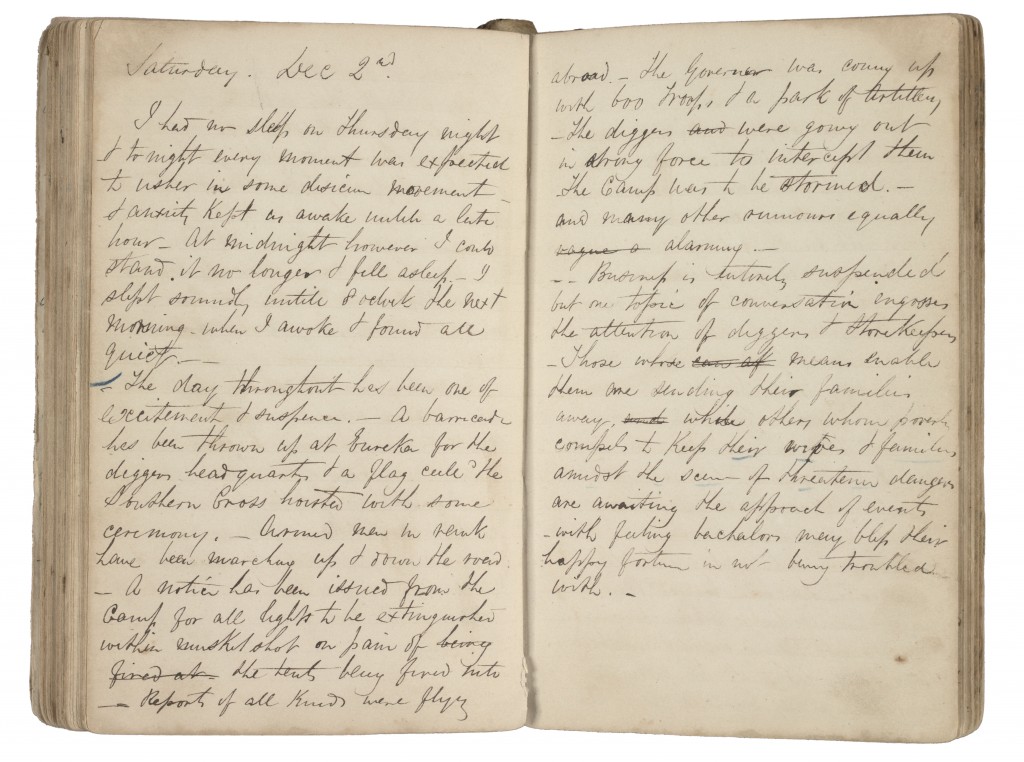 Saturday. Dec 2nd.
I had no sleep on Thursday night
& to night every moment was expected
to usher in some movement
& anxiety kept us awake untile a late
hour - At midnight however I could
stand it no longer & fell asleep - I
slept soundly untile 8 oclock the next
morning - when I awoke & found all
quiet. - -
- The day throughout has been one of
excitement & suspence. - A barricade
has been thrown up at Eureka for the
diggers head quarters & a flag calld the
Southern Cross hoisted with some
ceremony. - Armed men in rank
have been marching up & down the road.
- A notice has been issued from the
Camp for all lights to be extinguished
within musket shot on pain of being
fired at - the tents being fired into
- Reports of all kinds were flying
abroad. - The Governor was coming up
with 600 Troops & a park of Artillery
- The diggers and were going out
in strong force to intercept them
The Camp was to be stormed. -
and many other rumours equally
vague & alarming. -
- - Business is entirely suspended
but one topic of conversation engrosses
the attention of diggers & Storekeepers
- Those whose can aff means enable
them are sending their families
away, and while others whom poverty
compels to keep their wives & families
amidst the scene of dangers
are awaiting the approach of events
- with feeling bachelors may bless their
happy fortune in not being troubled
with. -